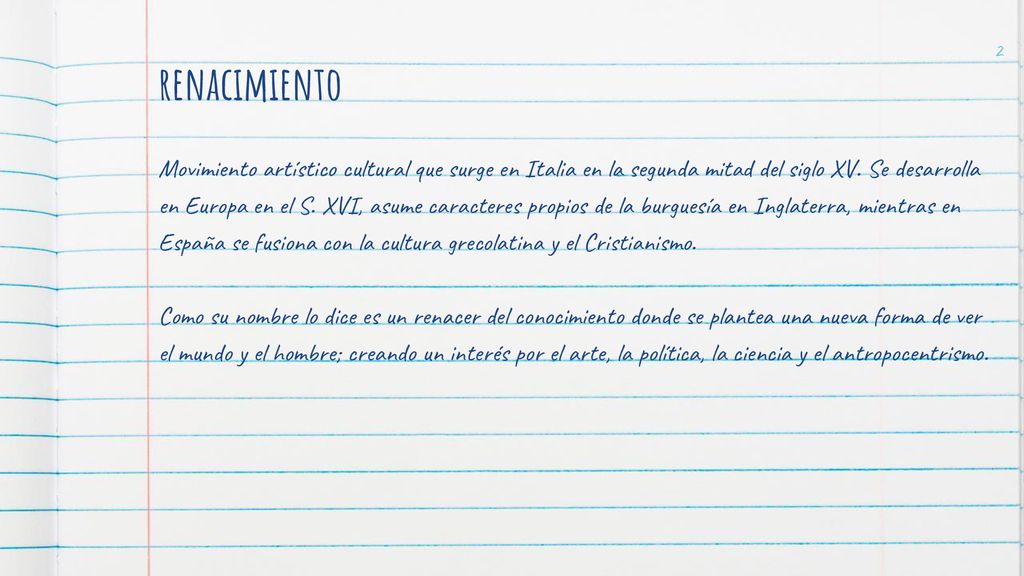 2
RENACIMIENTO
Movimiento artístico cultural que surge en Italia en la segunda mitad del siglo XV. Se desarrolla
en Europa en el S. XVI, asume caracteres propios de la burguesía en Inglaterra, mientras en
España se fusiona con la cultura grecolatina y el Cristianismo.
Como su nombre lo dice es un renacer del conocimiento donde se plantea una nueva forma de ver
el mundo y el hombre; creando un interés por el arte, la política, la ciencia y el antropocentrismo.